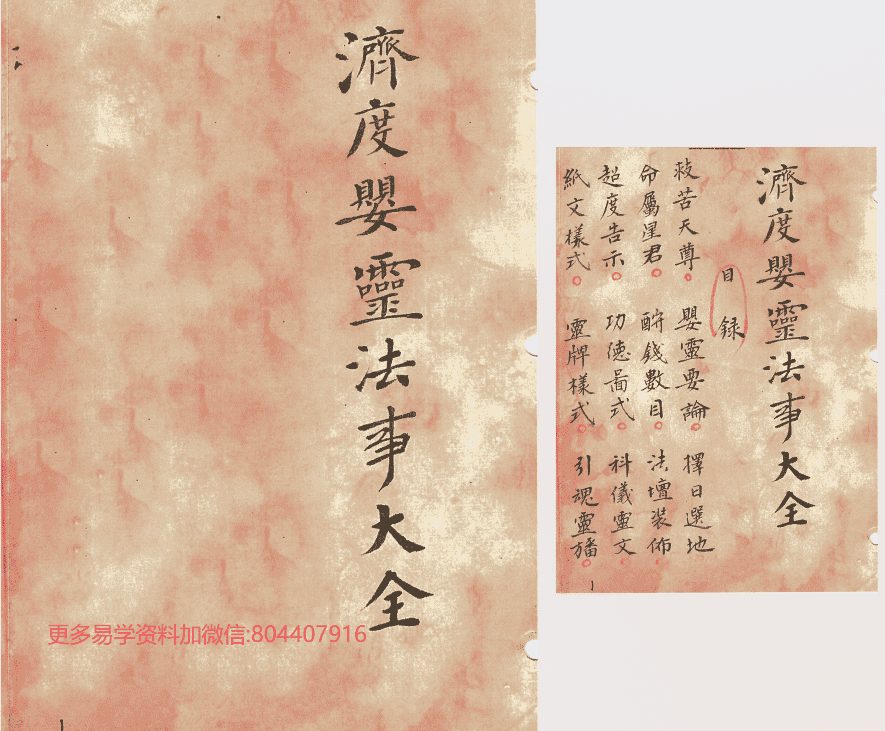 濟度嬰靈法事大全
更多易学资料加微信:804407916
濟度嬰靈法事大全
目録
救苦天尊 嬰靈要論 擇日選地
命屬星君 酧錢數目 法壇装佈
超度告示 功德啚式 科儀靈文
紙文樣式 靈牌樣式 引魂靈旛